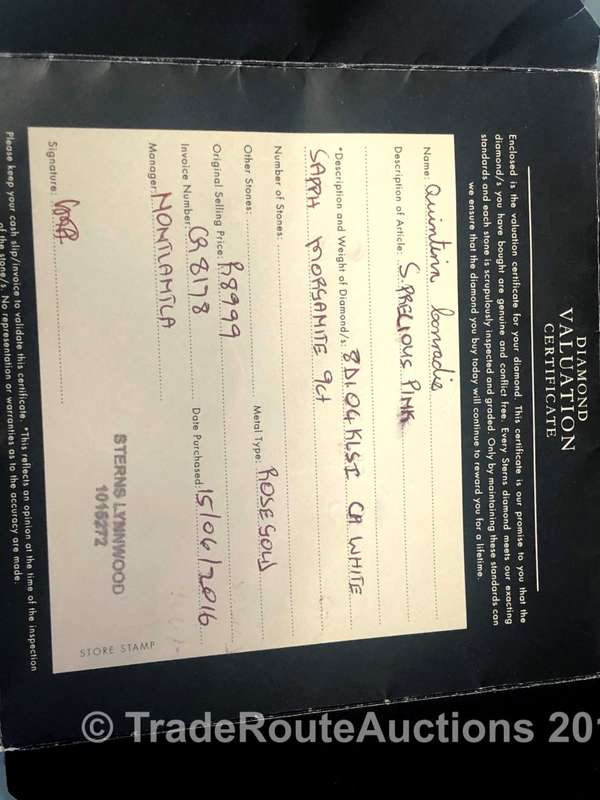 DIAMOND
VALUATION
CERTIFICATE
Enclosed is the valuation certificate for your diamond. This certificate is our promise to you that the
diamond/s you have bought are genuine and conflict free. Every Sterns diamond meets our exacting
standards and each stone is scrupulously inspected and graded. Only by maintaining these standards can
we ensure that the diamond you buy today will continue to reward you for a lifetime.
Name: Quintirin Conradie
Description of Article: S.PRECIOUS PINK
*Description and Weight of Diamond/s: 8D1.04KLSI CA WHITE
SAPPH MORGAMITE 9ct
Number of Stones:
Other Stones: Metal Type: ROSEGOLD
Original Selling Price: R8999
Invoice Number: CA 8178 Date Purchased: 15/06/2016
Manager: NONTLAMTLA
STERNS LYNNWOOD
1016272
Signature:
STORE STAMP
Please keep your cash slip/invoice to validate this certificate. *This reflects an opinion at the time of the inspection
of the stone/s. No representation or warranties as to the accuracy are made.
© TradeRouteAuctions 201